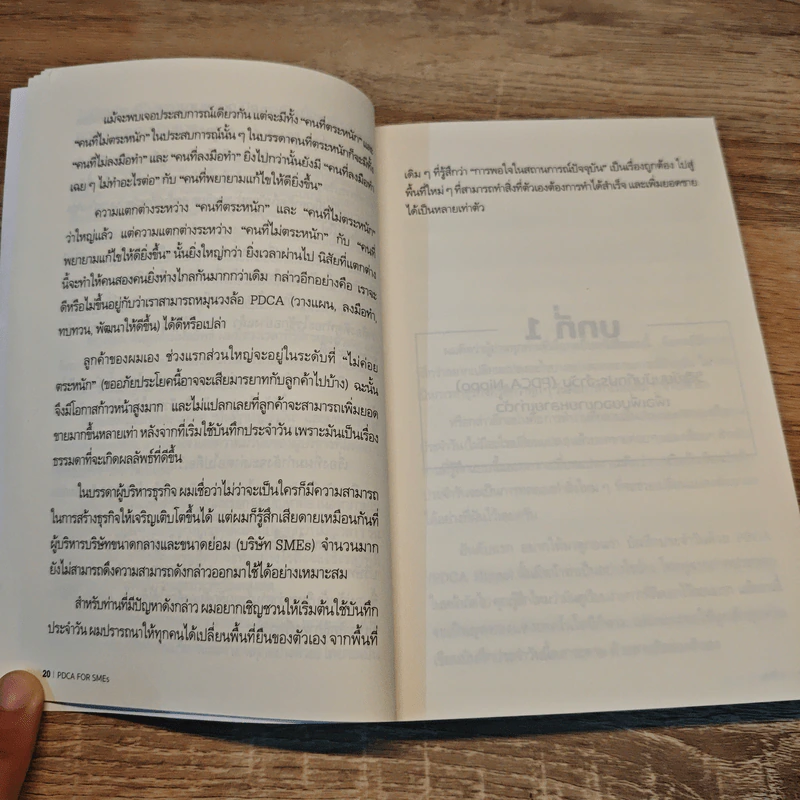 แม้จะพบเจอประสบการณ์เดียวกัน แต่จะมีทั้ง “คนที่ตระหนัก” และ
“คนที่ไม่ตระหนัก” ในประสบการณ์นั้น ๆ ในบรรดาคนที่ตระหนักก็จะมีทั้ง
“คนที่ไม่ลงมือทำ” และ “คนที่ลงมือทำ” ยิ่งไปกว่านั้นยังมี “คนที่ลงมือทำ
เฉย ๆ ไม่ทำอะไรต่อ” กับ “คนที่พยายามแก้ไขให้ดียิ่งขึ้น”
ความแตกต่างระหว่าง “คนที่ตระหนัก” และ “คนที่ไม่ตระหนัก”
ว่าใหญ่แล้ว แต่ความแตกต่างระหว่าง “คนที่ไม่ตระหนัก” กับ “คนที่
พยายามแก้ไขให้ดียิ่งขึ้น” นั้นยิ่งใหญ่กว่า ยิ่งเวลาผ่านไป นิสัยที่แตกต่าง
นี้จะทำให้คนสองคนยิ่งห่างไกลกันมากกว่าเดิม กล่าวอีกอย่างคือ เราจะ
ดีหรือไม่ขึ้นอยู่กับว่าเราสามารถหมุนวงล้อ PDCA (วางแผน, ลงมือทำ,
ทบทวน, พัฒนาให้ดีขึ้น) ได้ดีหรือเปล่า
ลูกค้าของผมเอง ช่วงแรกส่วนใหญ่จะอยู่ในระดับที่ “ไม่ค่อย
ตระหนัก” (ขออภัยประโยคนี้อาจจะเสียมารยาทกับลูกค้าไปบ้าง) ฉะนั้น
จึงมีโอกาสก้าวหน้าสูงมาก และไม่แปลกเลยที่ลูกค้าจะสามารถเพิ่มยอด
ขายมากขึ้นหลายเท่า หลังจากที่เริ่มใช้บันทึกประจำวัน เพราะมันเป็นเรื่อง
ธรรมดาที่จะเกิดผลลัพธ์ที่ดีขึ้น
ในบรรดาผู้บริหารธุรกิจ ผมเชื่อว่าไม่ว่าจะเป็นใครก็มีความสามารถ
ในการสร้างธุรกิจให้เจริญเติบโตขึ้นได้ แต่ผมก็รู้สึกเสียดายเหมือนกันที่
ผู้บริหารบริษัทขนาดกลางและขนาดย่อม (บริษัท SMEs) จำนวนมาก
ยังไม่สามารถดึงความสามารถดังกล่าวออกมาใช้ได้อย่างเหมาะสม
สำหรับท่านที่มีปัญหาดังกล่าว ผมอยากเชิญชวนให้เริ่มต้นใช้บันทึก
ประจำวัน ผมปรารถนาให้ทุกคนได้เปลี่ยนพื้นที่ยืนของตัวเอง จากพื้นที่
20 | PDCA FOR SMEs
เดิม ๆ ที่รู้สึกว่า “การพอใจในสถานการณ์ปัจจุบัน” เป็นเรื่องถูกต้อง ไปสู่
พื้นที่ใหม่ ๆ ที่สามารถทำสิ่งที่ตัวเองต้องการทำได้สำเร็จ และเพิ่มยอดขาย
ได้เป็นหลายเท่าตัว